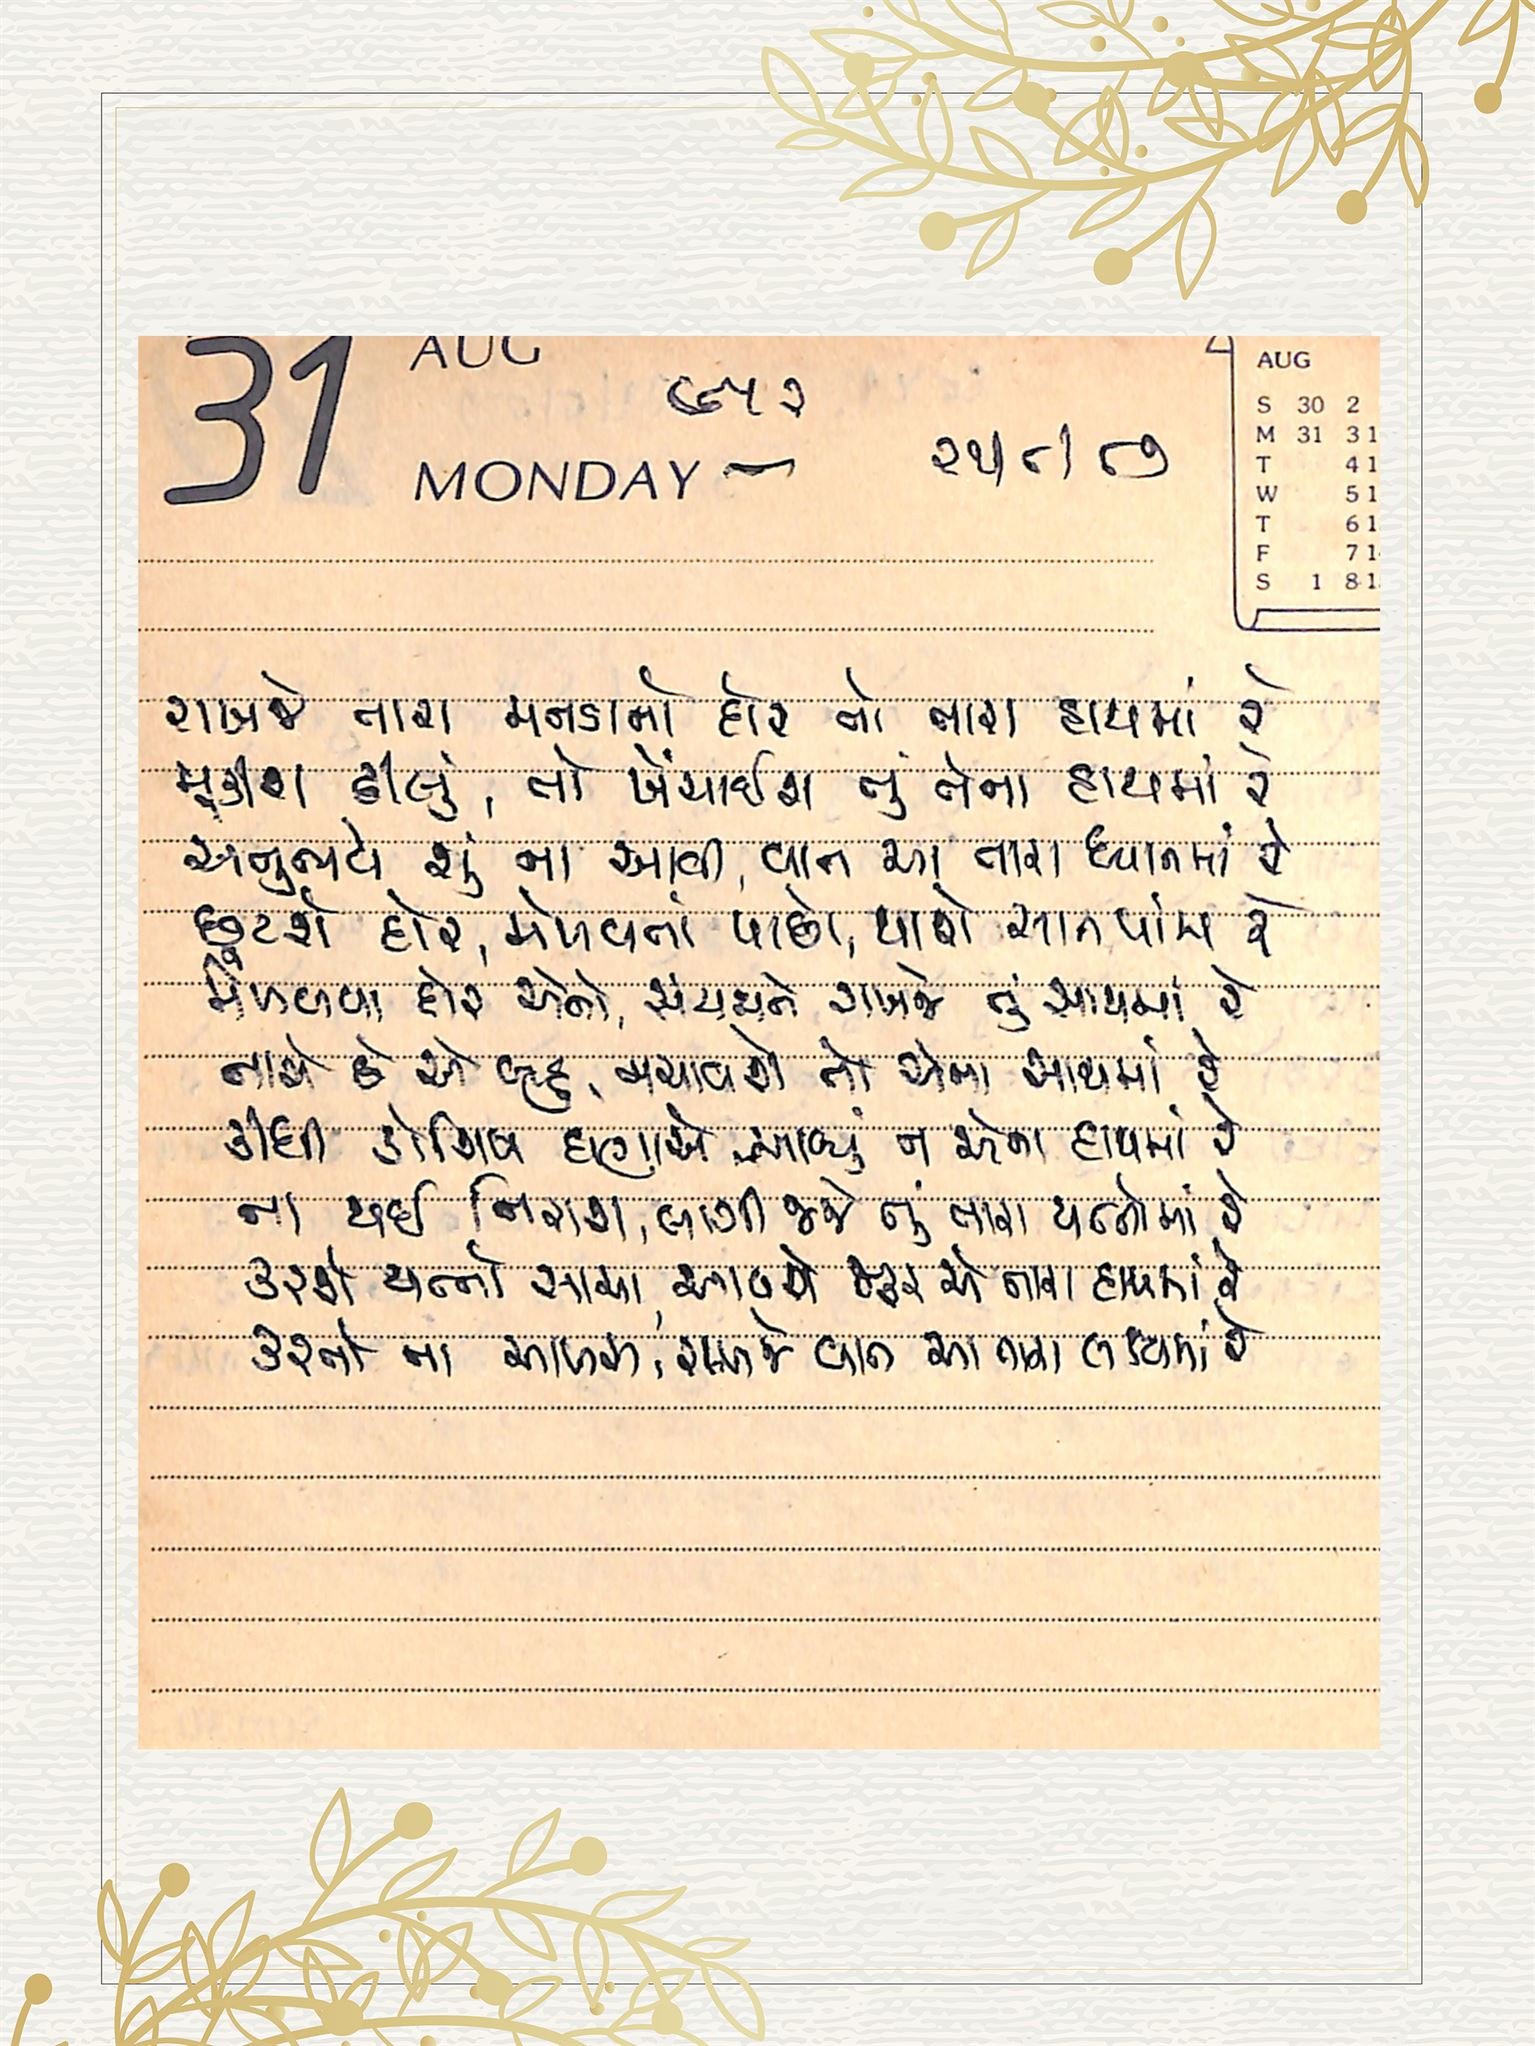 31 AUG
MONDAY
૨૫/૮/૮૭
AUG
S 30 2
M 31 3 1
T 4 1
W 5 1
T 6 1
F 7 1
S 1 8 1
રાખજે તારા મનડાનો દોર તો તારા હાથમાં રે
મૂકીશ ઢીલું, તો ખેંચાઈશ તું તેના હાથમાં રે
અનુભવે શું ના આવી, વાત આ તારા ધ્યાનમાં રે
છૂટશે દોર, મેળવતાં પાછો, થાશે સાત પાંચ રે
મેળવવા દોર એનો, સંયમને રાખજે તું સાથમાં રે
નાચે છે એ બહુ, નચાવશે તને એના સાથમાં રે
કીધી કોશિશ ઘણાએ, આવ્યું ન એના હાથમાં રે
ના થઈ નિરાશ, લાગી જજે તું તારા યત્નોમાં રે
કરશે યત્નો સાચા, આવશે જરૂર એ તારા હાથમાં રે
કરતો ના આળસ, રાખજે વાત આ તારા લક્ષ્યમાં રે